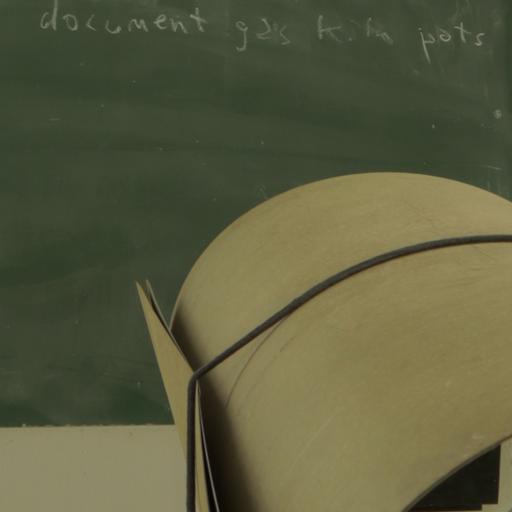 document gas kiln pots